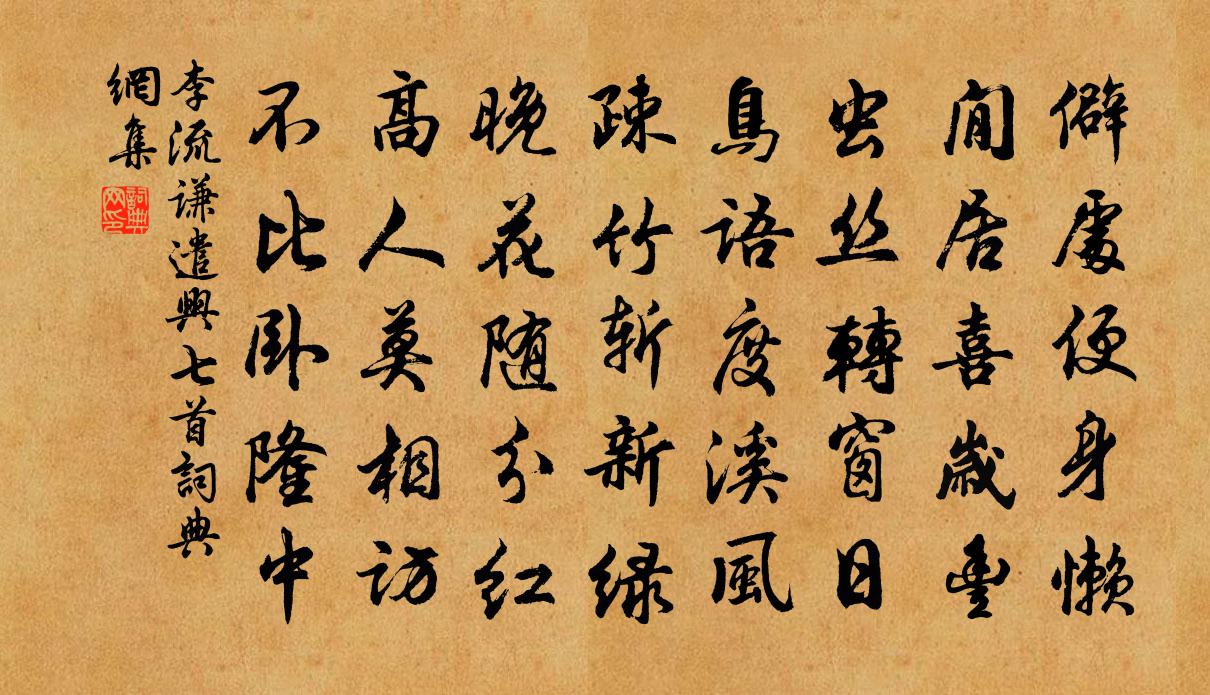 僻處便身懶
閒居喜歲豐
虫丝轉窗日
鳥語度溪風
疎竹斬新綠
晚花随分紅
高人莫相訪
不比卧隆中
李流謙遣興七首詞典
網集
詞典
网印